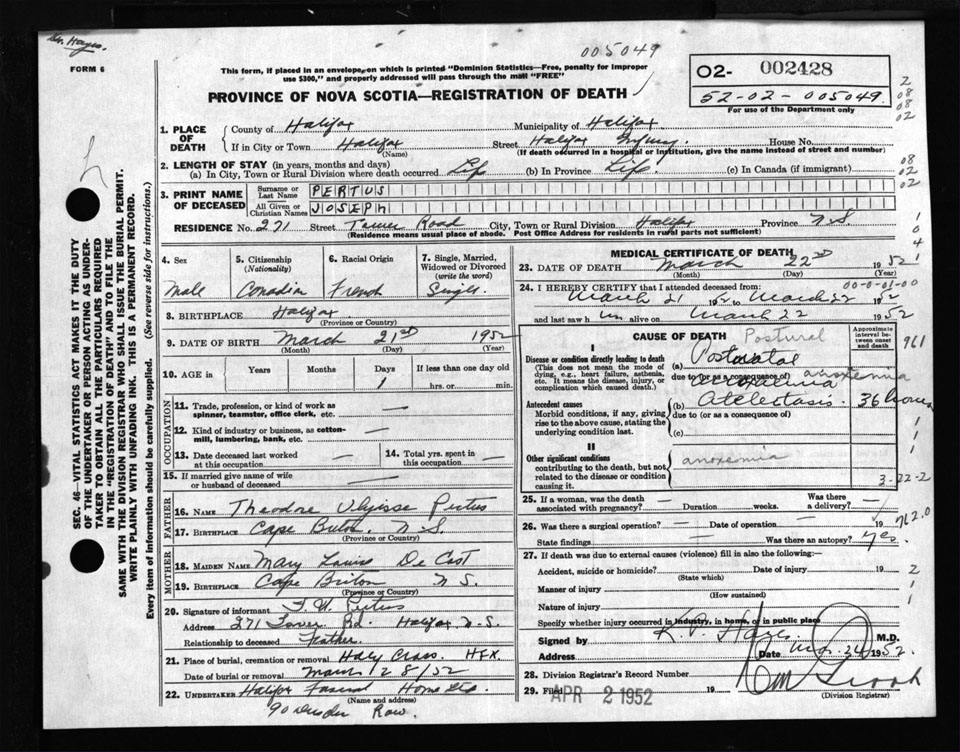 Dr. Hayes.
FORM 6
005049
This form, if placed in an envelope, on which is printed "Dominion Statistics—Free, penalty for improper
use $300," and properly addressed will pass through the mail "FREE"
PROVINCE OF NOVA SCOTIA—REGISTRATION OF DEATH
02- 002428
52-02-005049
For use of the Department only
2
08
08
02
1. PLACE OF DEATH
County of Halifax Municipality of Halifax
If in City or Town Halifax Street Halifax Infirmy. House No.
(Name) (If death occurred in a hospital or institution, give the name instead of street and number)
2. LENGTH OF STAY (in years, months and days)
(a) In City, Town or Rural Division where death occurred Life (b) In Province Life. (c) In Canada (if immigrant)
08
02
3. PRINT NAME OF DECEASED
Surname or Last Name PERTUS
All Given or Christian Names JOSEPH
RESIDENCE No. 271 Street Tower Road City, Town or Rural Division Halifax Province N.S.
(Residence means usual place of abode. Post Office Address for residents in rural parts not sufficient)
4. Sex 5. Citizenship 6. Racial Origin 7. Single, Married,
(Nationality) Widowed or Divorced
(write the word)
Male Canadia French Single.
8. BIRTHPLACE Halifax
(Province or Country)
9. DATE OF BIRTH March 21st 1952
(Month) (Day) (Year)
10. AGE in Years Months Days If less than one day old
1 hrs. or min.
OCCUPATION
11. Trade, profession, or kind of work as
spinner, teamster, office clerk, etc. —
12. Kind of industry or business, as cotton-
mill, lumbering, bank, etc. —
13. Date deceased last worked
at this occupation —
14. Total yrs. spent in
this occupation —
15. If married give name of wife
or husband of deceased —
FATHER
16. NAME Theodore Ulysse Pertus
17. BIRTHPLACE Cape Breton N S.
(Province or Country)
MOTHER
18. MAIDEN NAME Mary Louise De Cost
19. BIRTHPLACE Cape Briton N S.
(Province or Country)
20. Signature of informant T. U. Pertus
Address 371 Tower Rd. Halifax N.S.
Relationship to deceased Father.
21. Place of burial, cremation or removal Holy Cross HFX.
Date of burial or removal March 28/52
22. UNDERTAKER Halifax Funeral Home Ltd.
(Name and address)
90 Row.
MEDICAL CERTIFICATE OF DEATH
23. DATE OF DEATH March 22nd 1952
(Month) (Day) (Year)
24. I HEREBY CERTIFY that I attended deceased from: 00-0-01-00
March 21 1952 to March 22 1952
and last saw h im alive on March 22 1952
CAUSE OF DEATH Postural
Approximate interval between onset and death
961
I
Disease or condition directly leading to death
(This does not mean the mode of dying, e.g., heart failure, asthenia, etc. It means the disease, injury, or complication which caused death.)
(a) Postnatal
due to (or as a consequence of) anoxemia
Antecedent causes
Morbid conditions, if any, giving rise to the above cause, stating the underlying condition last.
(b) Atelectasis. 36 hours
due to (or as a consequence of)
(c)
II
Other significant conditions
contributing to the death, but not related to the disease or condition causing it.
anoxemia
3-22-2
25. If a woman, was the death
associated with pregnancy? — Duration weeks. Was there
a delivery? —
26. Was there a surgical operation? — Date of operation —
762.0
State findings — Was there an autopsy? Yes.
27. If death was due to external causes (violence) fill in also the following:—
Accident, suicide or homicide? Date of injury 19
(State which)
Manner of injury
(How sustained)
Nature of injury
Specify whether injury occurred in industry, in home, or in public place
Signed by K. P. Hayes. M.D.
Address Date Mar. 24 1952.
28. Division Registrar's Record Number
29. Filed APR 2 1952 19
(Division Registrar)
SEC. 46—VITAL STATISTICS ACT MAKES IT THE DUTY
OF THE UNDERTAKER OR PERSON ACTING AS UNDER-
TAKER TO OBTAIN ALL THE PARTICULARS REQUIRED
IN THE "REGISTRATION OF DEATH" AND TO FILE THE
SAME WITH THE DIVISION REGISTRAR WHO SHALL ISSUE THE BURIAL PERMIT.
WRITE PLAINLY WITH UNFADING INK. THIS IS A PERMANENT RECORD.
Every item of information should be carefully supplied. (See reverse side for instructions.)